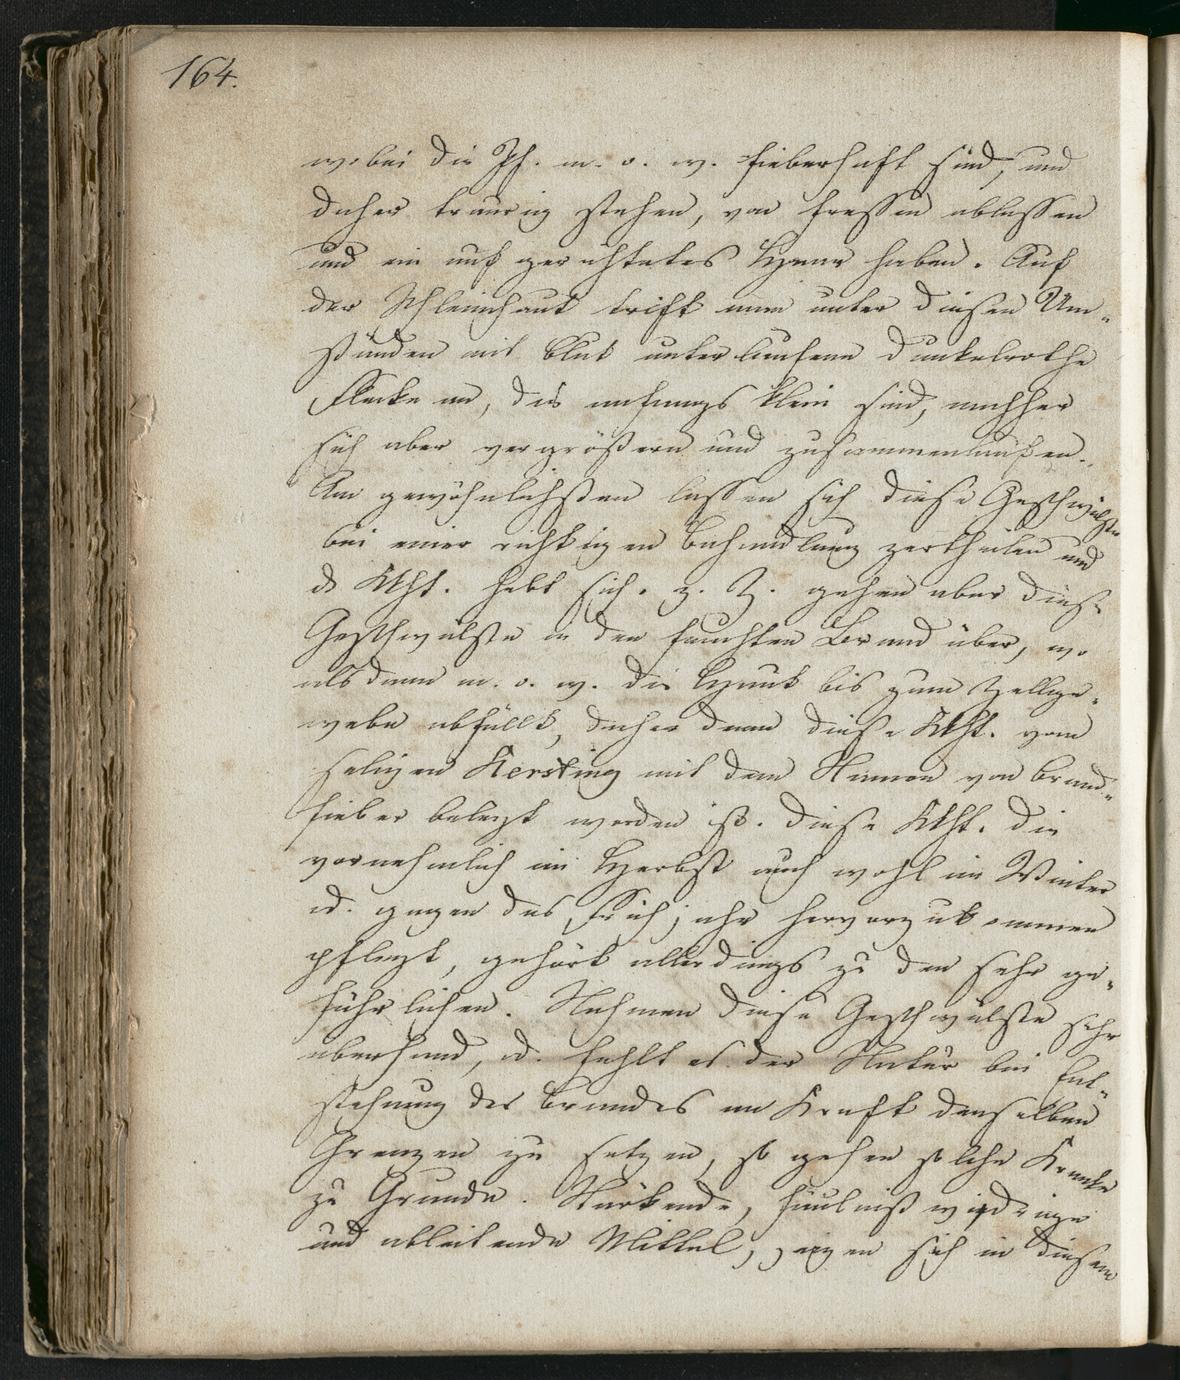 164.
wobei die Pf. m. o. w. fieberhaft sind, und
daher traurig stehen, von fressen ablassen
und ein auf gerichtetes Haar haben. Auf
der Schleimhaut trift man unter diesen Um-
ständen mit Blut unterlaufene dunkelrothe
Flecke an, die anfangs klein sind, nachher
sich aber vergrößern und zusammenlaufen.
Am gewöhnlichsten lassen sich diese Geschwülste
bei einer richtigen Behandlung zertheilen und
d Kkht. hebt sich. z. Z. gehen aber diese
Geschwülste in den feuchten Brand über, wo
alsdann m. o. w. die Haut bis zum Zellge-
webe abfällt, daher denn diese Kkht. vom
seligen Kersting mit dem Namen von Brand-
fieber belegt worden ist. diese Kkht. die
vornehmlich im Herbst auch wohl im Winter
od. gegen das Frühjahr hervorzukommen
pflegt, gehört allerdings zu den sehr ge-
fährlichen. Nehmen diese Geschwülste sehr
überhand, od. fehlt es der Natur bei Ent-
stehung des Brandes an Kraft denselben
Grenzen zu setzen, so gehen solche Kranke
zu Grunde. Stärkende, fäulniß widrige
und ableitende Mittel, zeigen sich in diesem